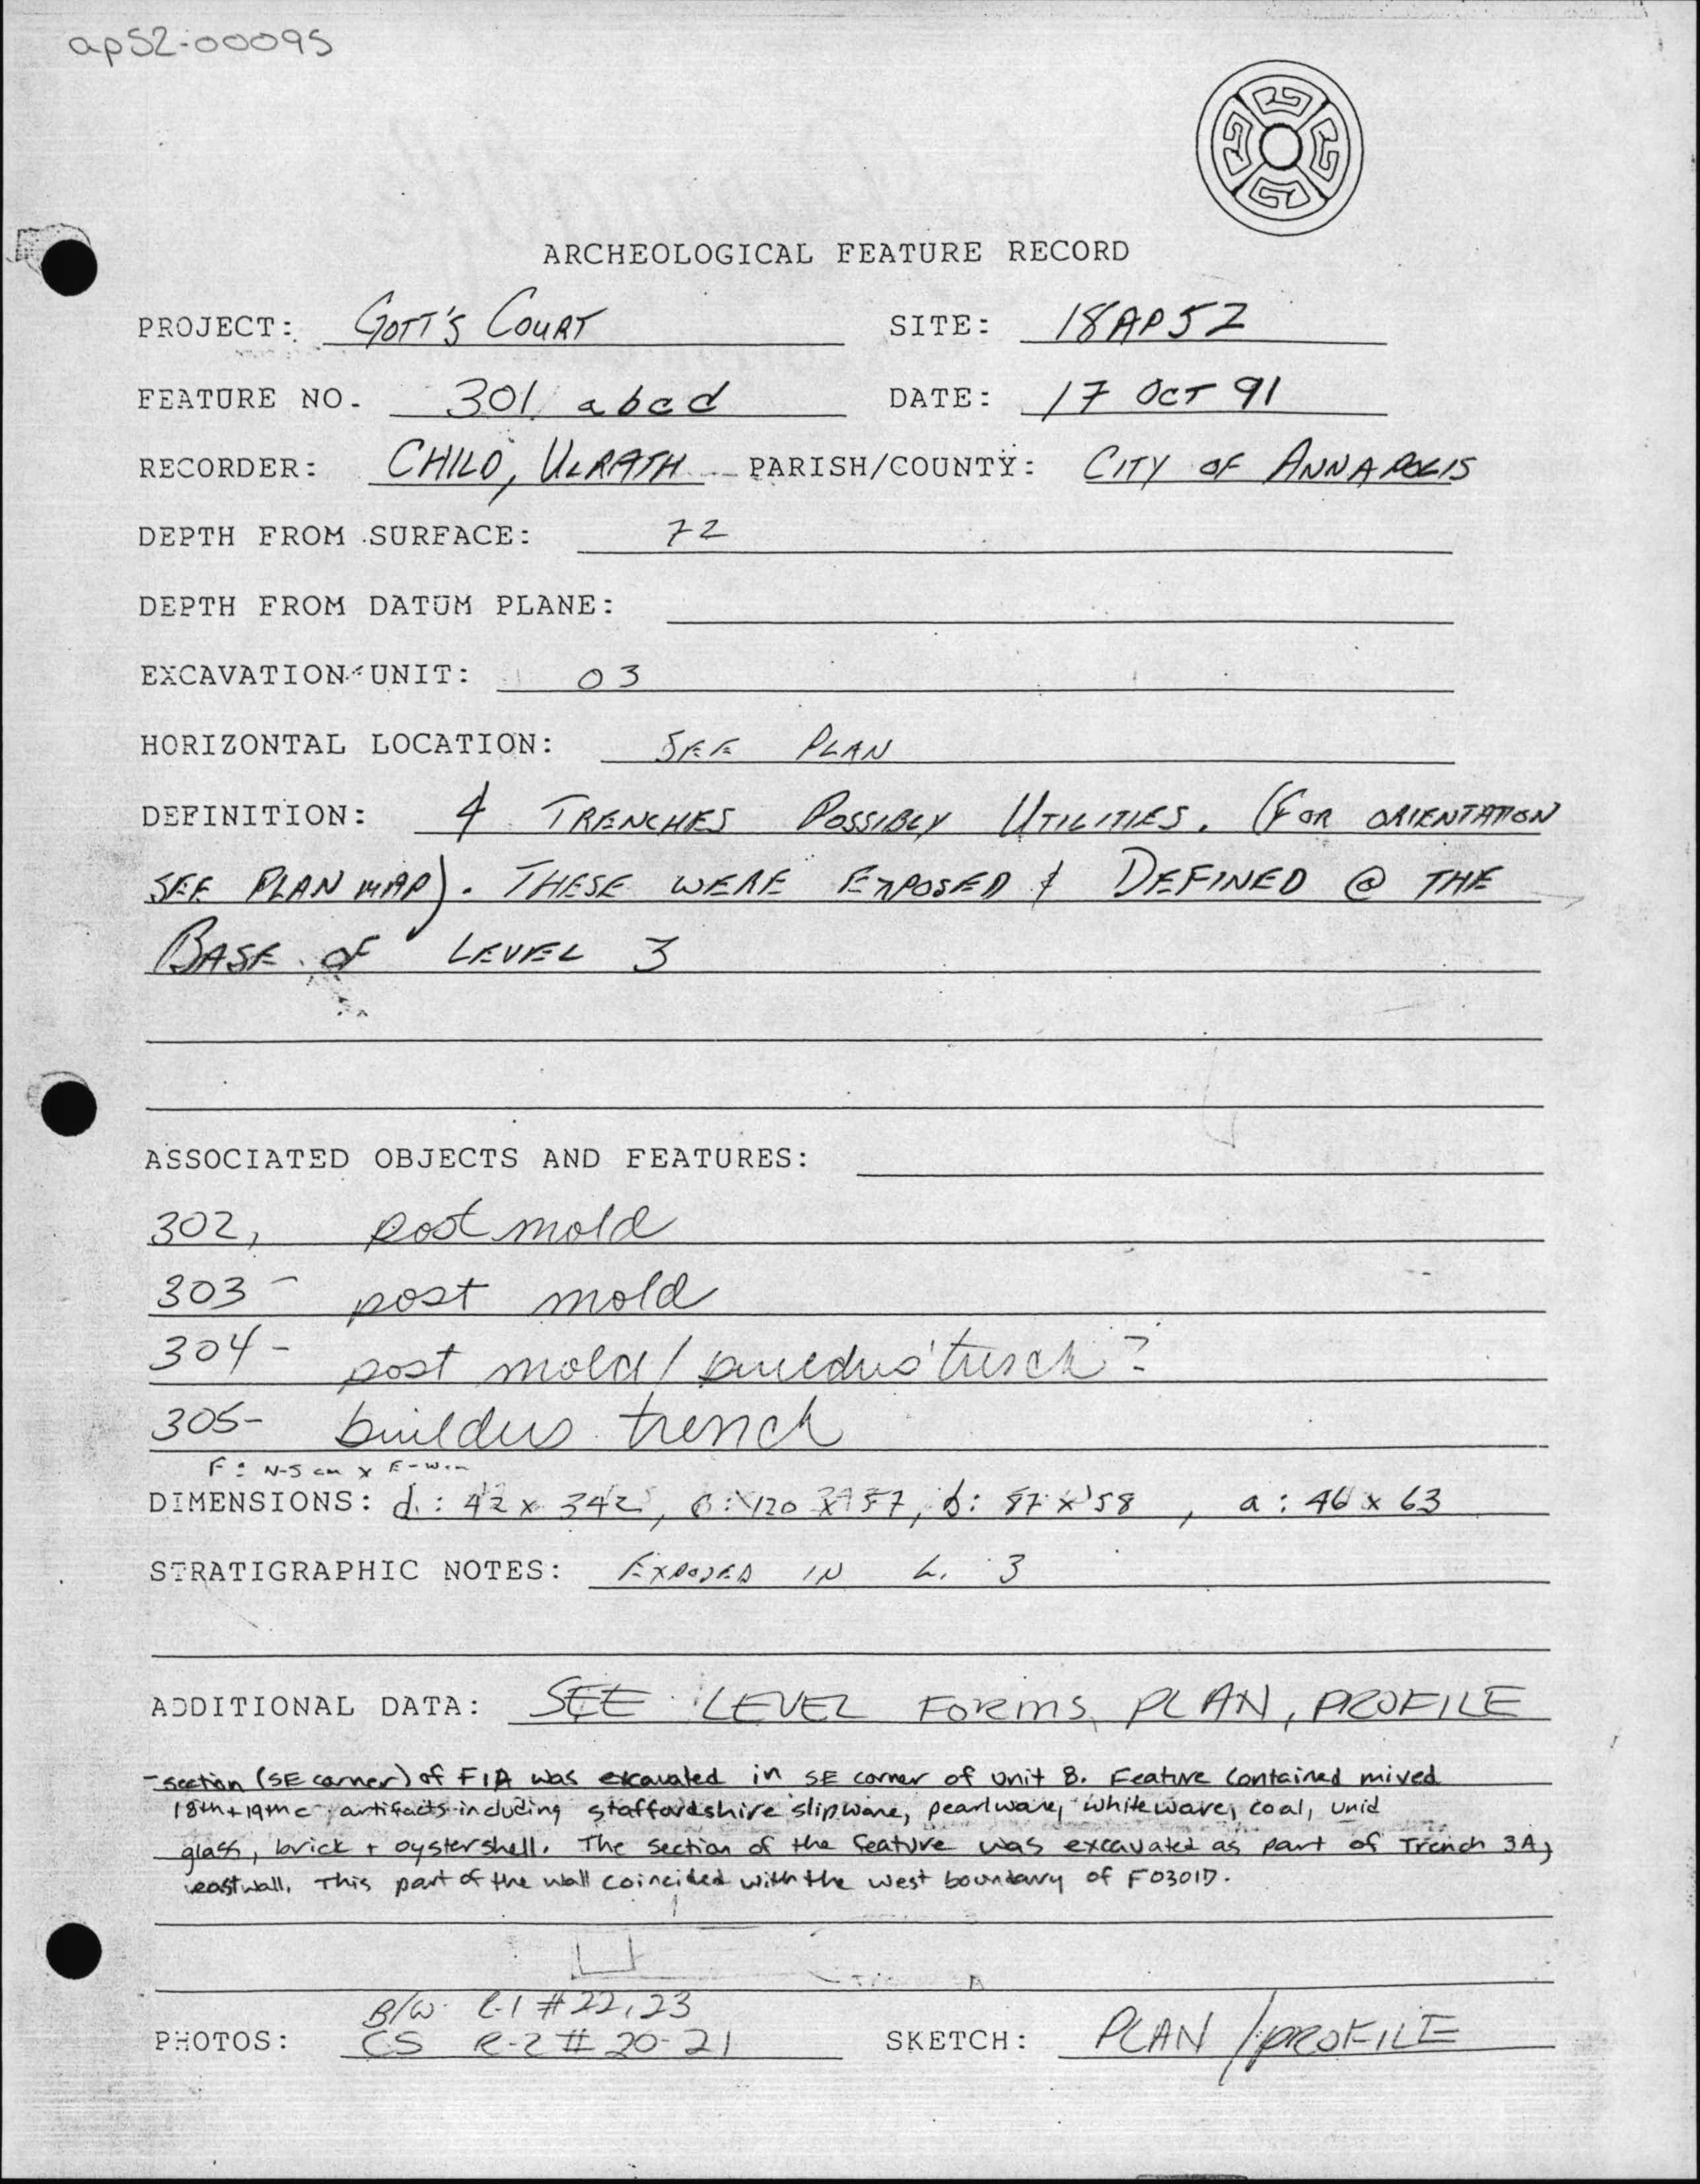 ap52-00095
ARCHEOLOGICAL FEATURE RECORD
PROJECT: GOTT'S COURT SITE: 18AP52
FEATURE NO. 301 abcd DATE: 17 OCT 91
RECORDER: CHILD, ULRATH PARISH/COUNTY: CITY OF ANNAPOLIS
DEPTH FROM SURFACE: 72
DEPTH FROM DATUM PLANE:
EXCAVATION UNIT: 03
HORIZONTAL LOCATION: SEE PLAN
DEFINITION: 4 TRENCHES POSSIBLY UTILITIES. (FOR ORIENTATION
SEE PLAN MAP). THESE WERE EXPOSED & DEFINED @ THE
BASE OF LEVEL 3
ASSOCIATED OBJECTS AND FEATURES:
302, post mold
303 - post mold
304 - post mold / builders' trench?
305- builders trench
F: N-S cm x E-W cm
DIMENSIONS: d.: 42 x 342, b: 87 x 58, a: 46 x 63
STRATIGRAPHIC NOTES: EXPOSED IN L. 3
ADDITIONAL DATA: SEE LEVEL FORMS, PLAN, PROFILE
- section (SE corner) of F1A was excavated in SE corner of Unit 8. Feature contained mixed
18th + 19th c artifacts including staffordshire slipware, pearlware, whiteware, coal, unid
glass, brick + oystershell. The section of the feature was excavated as part of Trench 3A,
eastwall. This part of the wall coincided with the west boundary of F0301D.
PHOTOS: B/W R-1 #22,23
CS R-2 # 20-21 SKETCH: PLAN / PROFILE